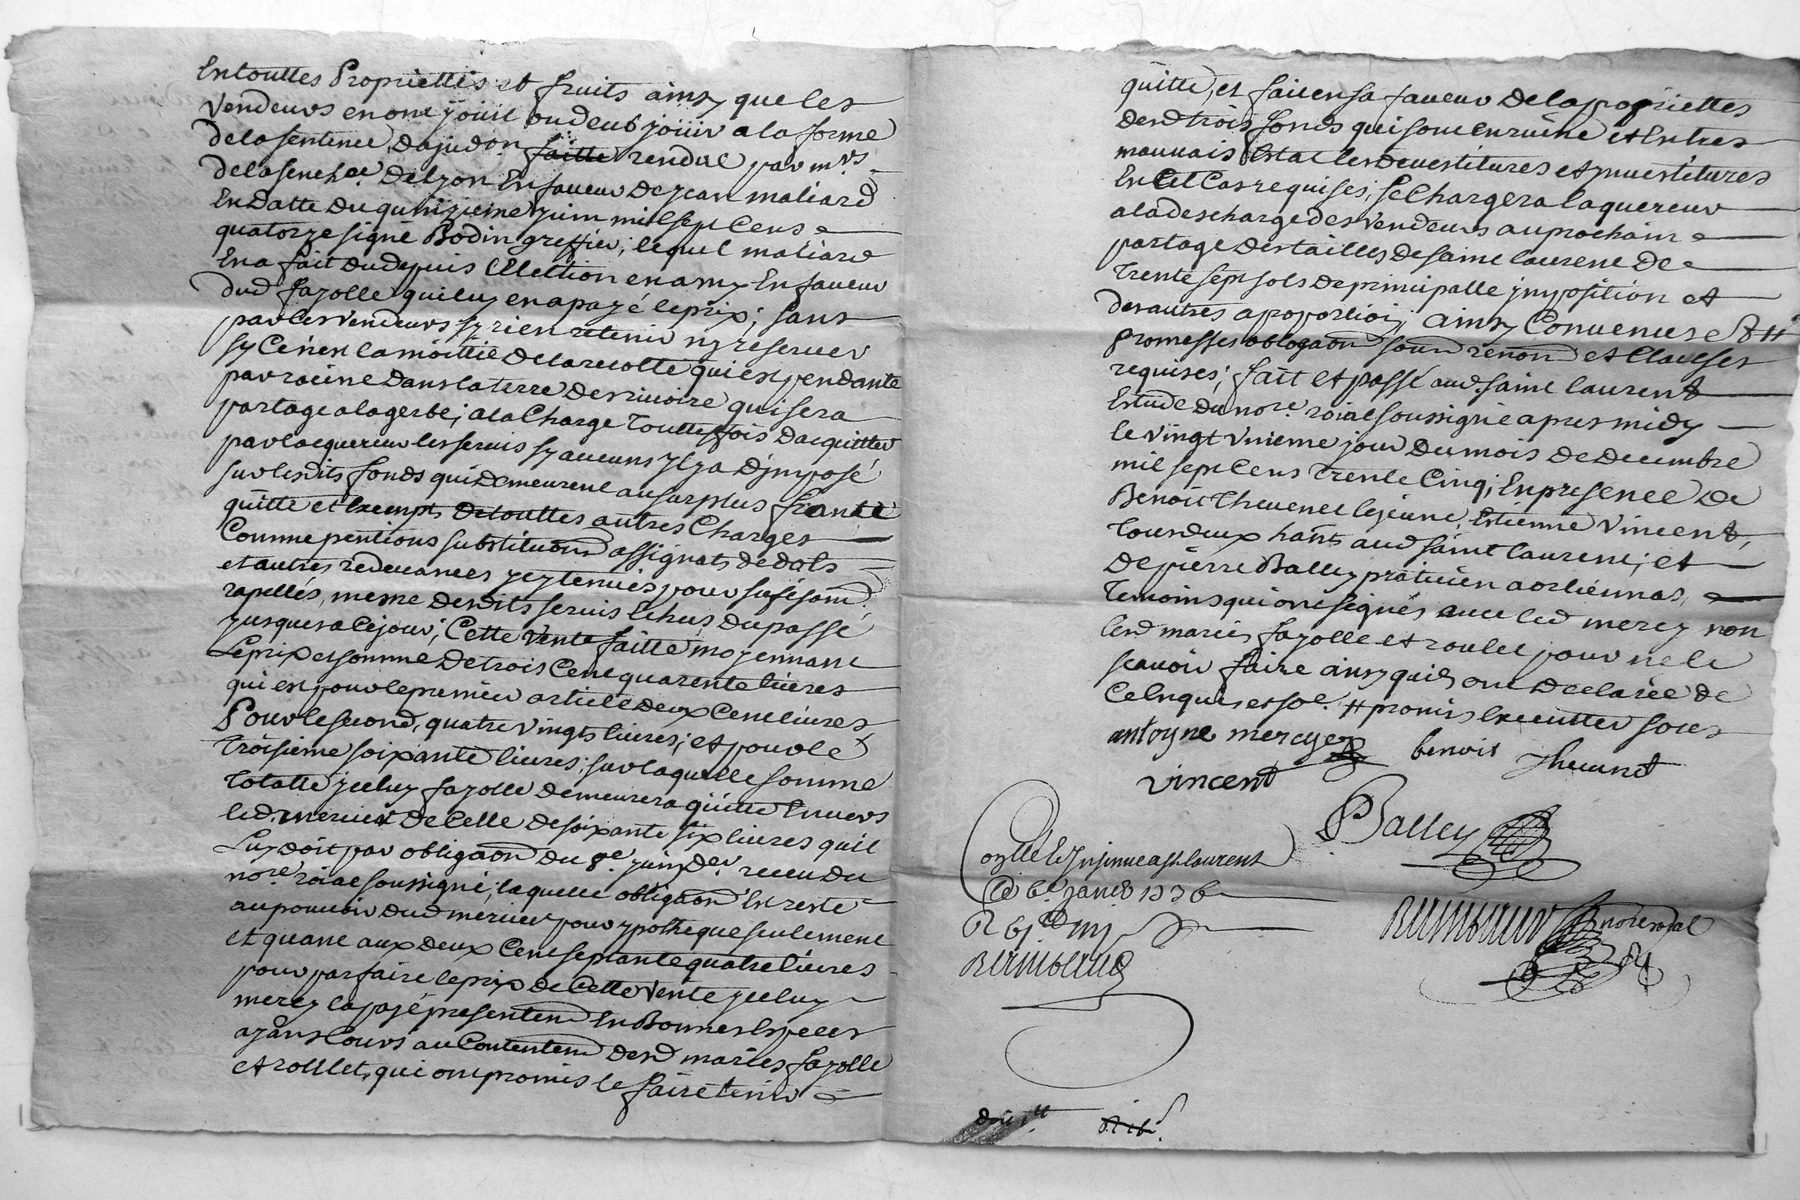 Entouttes Propriettés et fruits ainsy que les
vendeurs en ont joüit ou deub joüir a la forme
de la sentence Dajudon faitte rendüe par mrs
de la senchee De Lyon En faveur De jean maliard
En Datte Du quinzieme juin mil sept Cens
quatorze signé Bodin greffier; lequel maliard
En a fait du depuis lElection en amy En faveur
dud fayolle qui luy en a payé le prix; sans
par les vendeurs sy rien retenir ny reserver
sy Ce nest la moittié De la recolte qui est pendante
par racine Dans la terre Des rivoire qui sera
partagé a la gerbe; a la Charge Touttefois Dacquitter
par lacquereur les servis sy aucuns Il y a Dimposé
sur lesdits fonds qui Demeurent au surplus franc
quitte et Exempts De touttes autres Charges
Comme pentions substituons assignats de dots
et autres redevances jcy tenues pour sufisamt
rapellés, meme desdits servis Echus du passé
jusques a Ce jour; Cette Vente faitte moyennant
Le prix et somme De trois Cent quarente livres
qui est pour le premier article Deux Cent livres
Pour le second, quatre vingts livres; et pour le
Troisieme soixante livres; sur laquelle somme
Totalle jceluy fayolle Demeurera quitte Envers
led. mercier De Celle De soixante six livres quil
Luy Doit par obligaon du 8e juin der receu du
nore roial soussigné; laquelle obligaon En reste
au pouvoir dud mercier pour ypotheque seulement
Et quant aux Deux Cent septante quatre livres
pour parfaire le prix De Cette Vente jceluy
mercy la payé presentemt En Bonnes Especes
ayans Cours au Contentemt desd mariés fayolle
et rollet, qui ont promis le faire tenir
quitte, et faire en sa faveur De la propriettes
desd trois fonds qui sont en ruine et En tres
mauvais Estat les devestitures et jnvestitures
En tel Cas requises, se Chargera lacquereur
a la descharge des Vendeurs au prochain
partage Des tailles de saint laurent De
Trente sept sols De principalle jmposition et
des autres a proportion; ainsy Convenus et #
promesses obligaon soum renon et Clauses
requises; fait et passé aud. saint laurent
Estude du nore roial soussigné apres midy
le vingt unieme jour Du mois de Decembre
mil sept Cens Trente Cinq; En presence De
Benoit Thevenet le jeune, Estienne Vincent,
Tous deux hants aud saint laurent; et
De pierre Balley praticien a orliennas,
Temoins qui ont signés avec led mercy non
lesd mariés fayolle et roulet pour ne le
scavoir faire ainsy quils ont Declarée de
Ce Enquis et soe. # promis Executter sous
antoyne mercyer benoit Thevenet
vincent
Balley
Conlle Et Insinué a St laurent
le 6e janer 1736
R